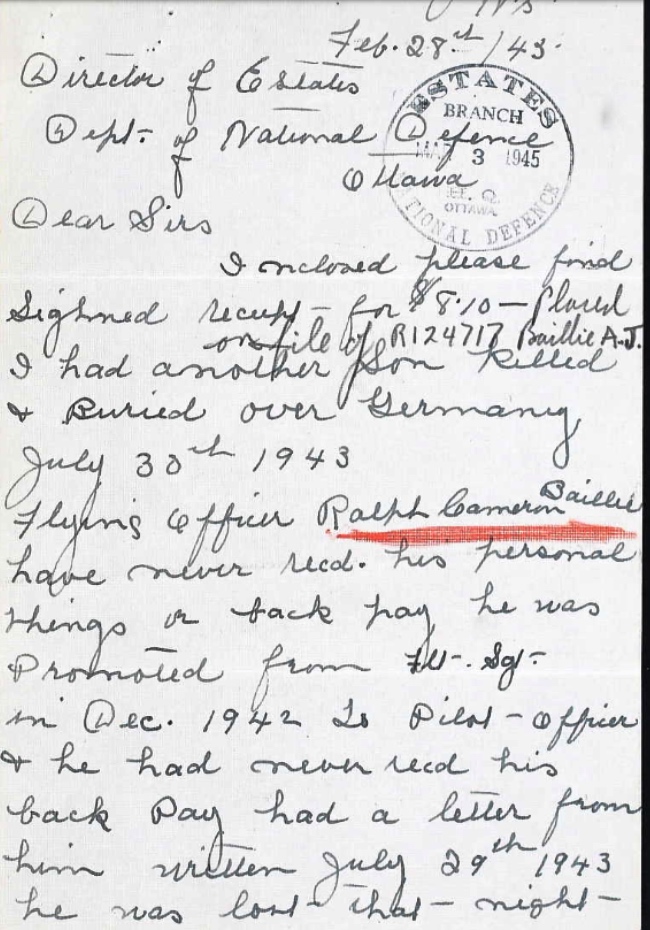 Feb. 28th /43.
Director of Estates
Dept. of National Defence
Ottawa
ESTATES
BRANCH
MAR 3 1945
H. Q.
OTTAWA
NATIONAL DEFENCE
Dear Sirs
I inclosed please find
Sighned receipt - for $8.10 - Placed
on file of R124717 Baillie A.J.
I had another Son Killed
& Buried over Germany
July 30th 1943
Flying Officer Ralph Cameron Baillie
have never recd. his personal
things or back pay he was
Promoted from Flt-. Sgt-.
in Dec. 1942 to Pilot - Officer
& he had never recd his
back Pay had a letter from
him written July 29th 1943
he was lost that night -